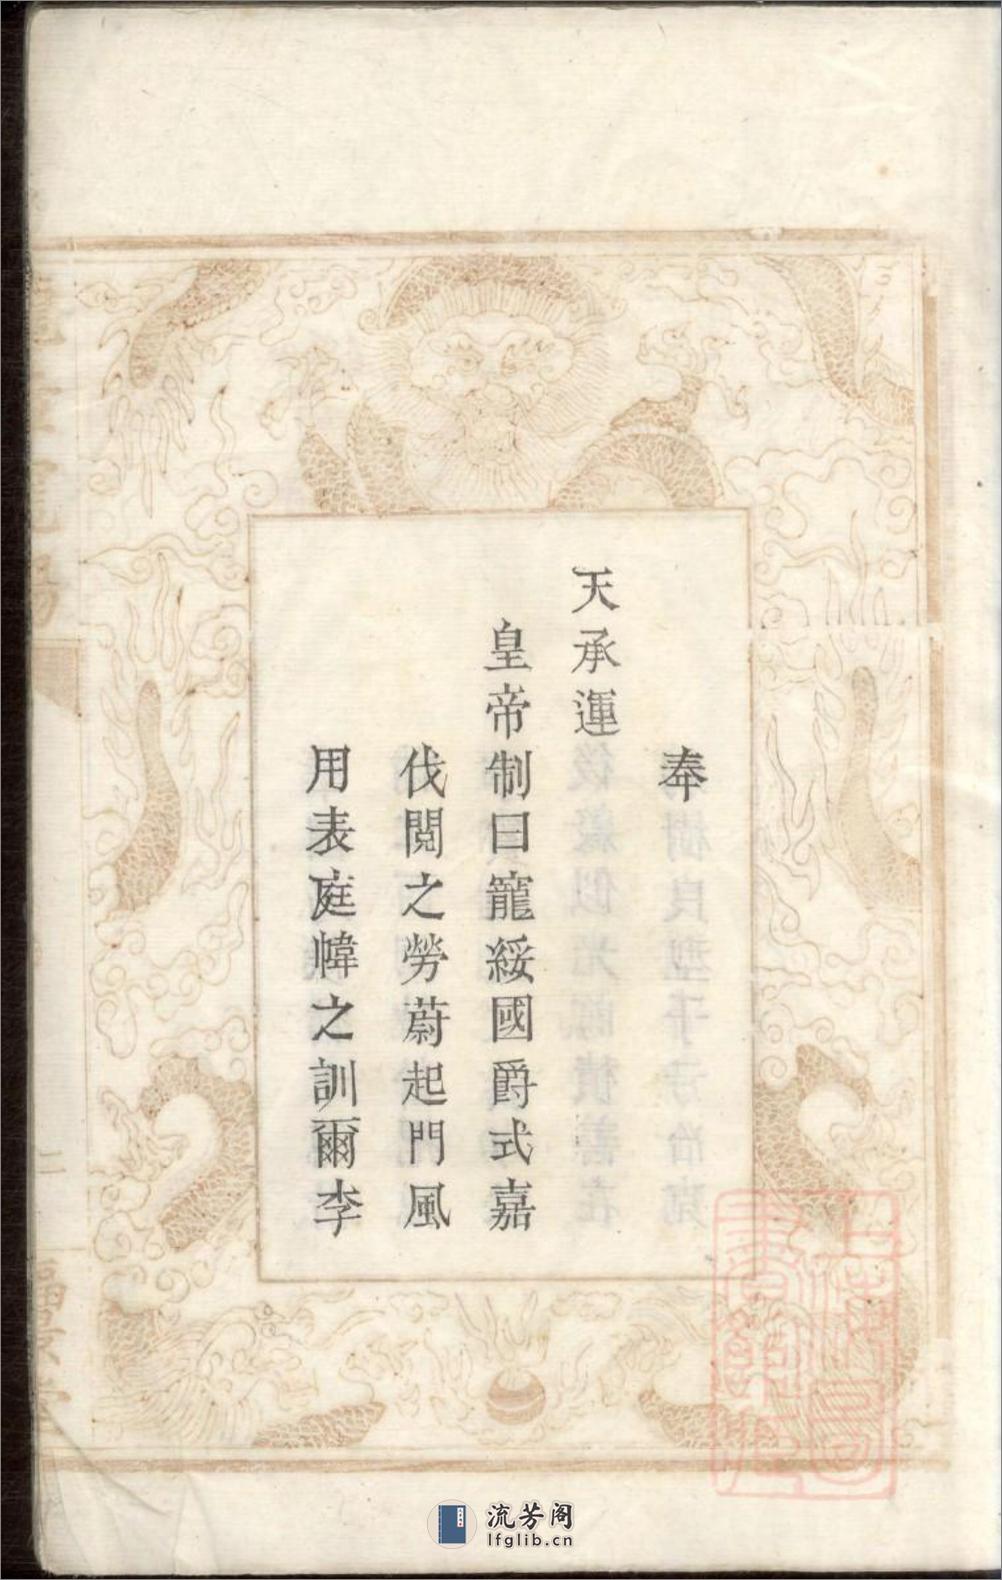 奉
天承運
皇帝制曰寵綏國爵式嘉
伐閱之勞蔚起門風
用表庭幃之訓爾李
流芳阁
lfglib.cn